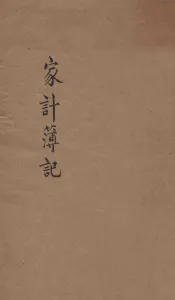 家計簿記